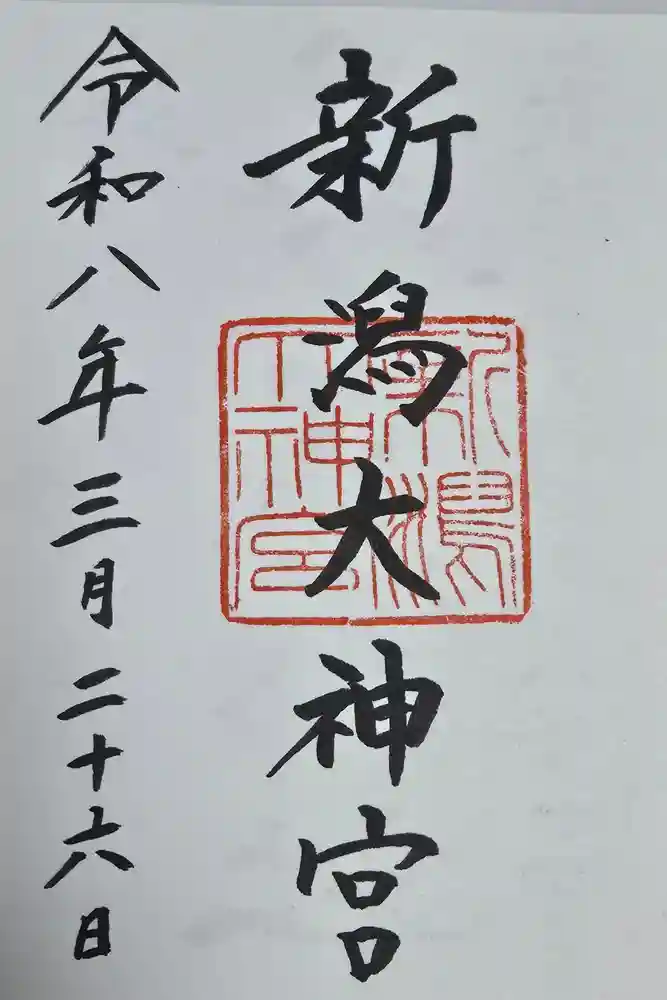 新潟大神宮
新潟大神宮
令和八年三月二十六日